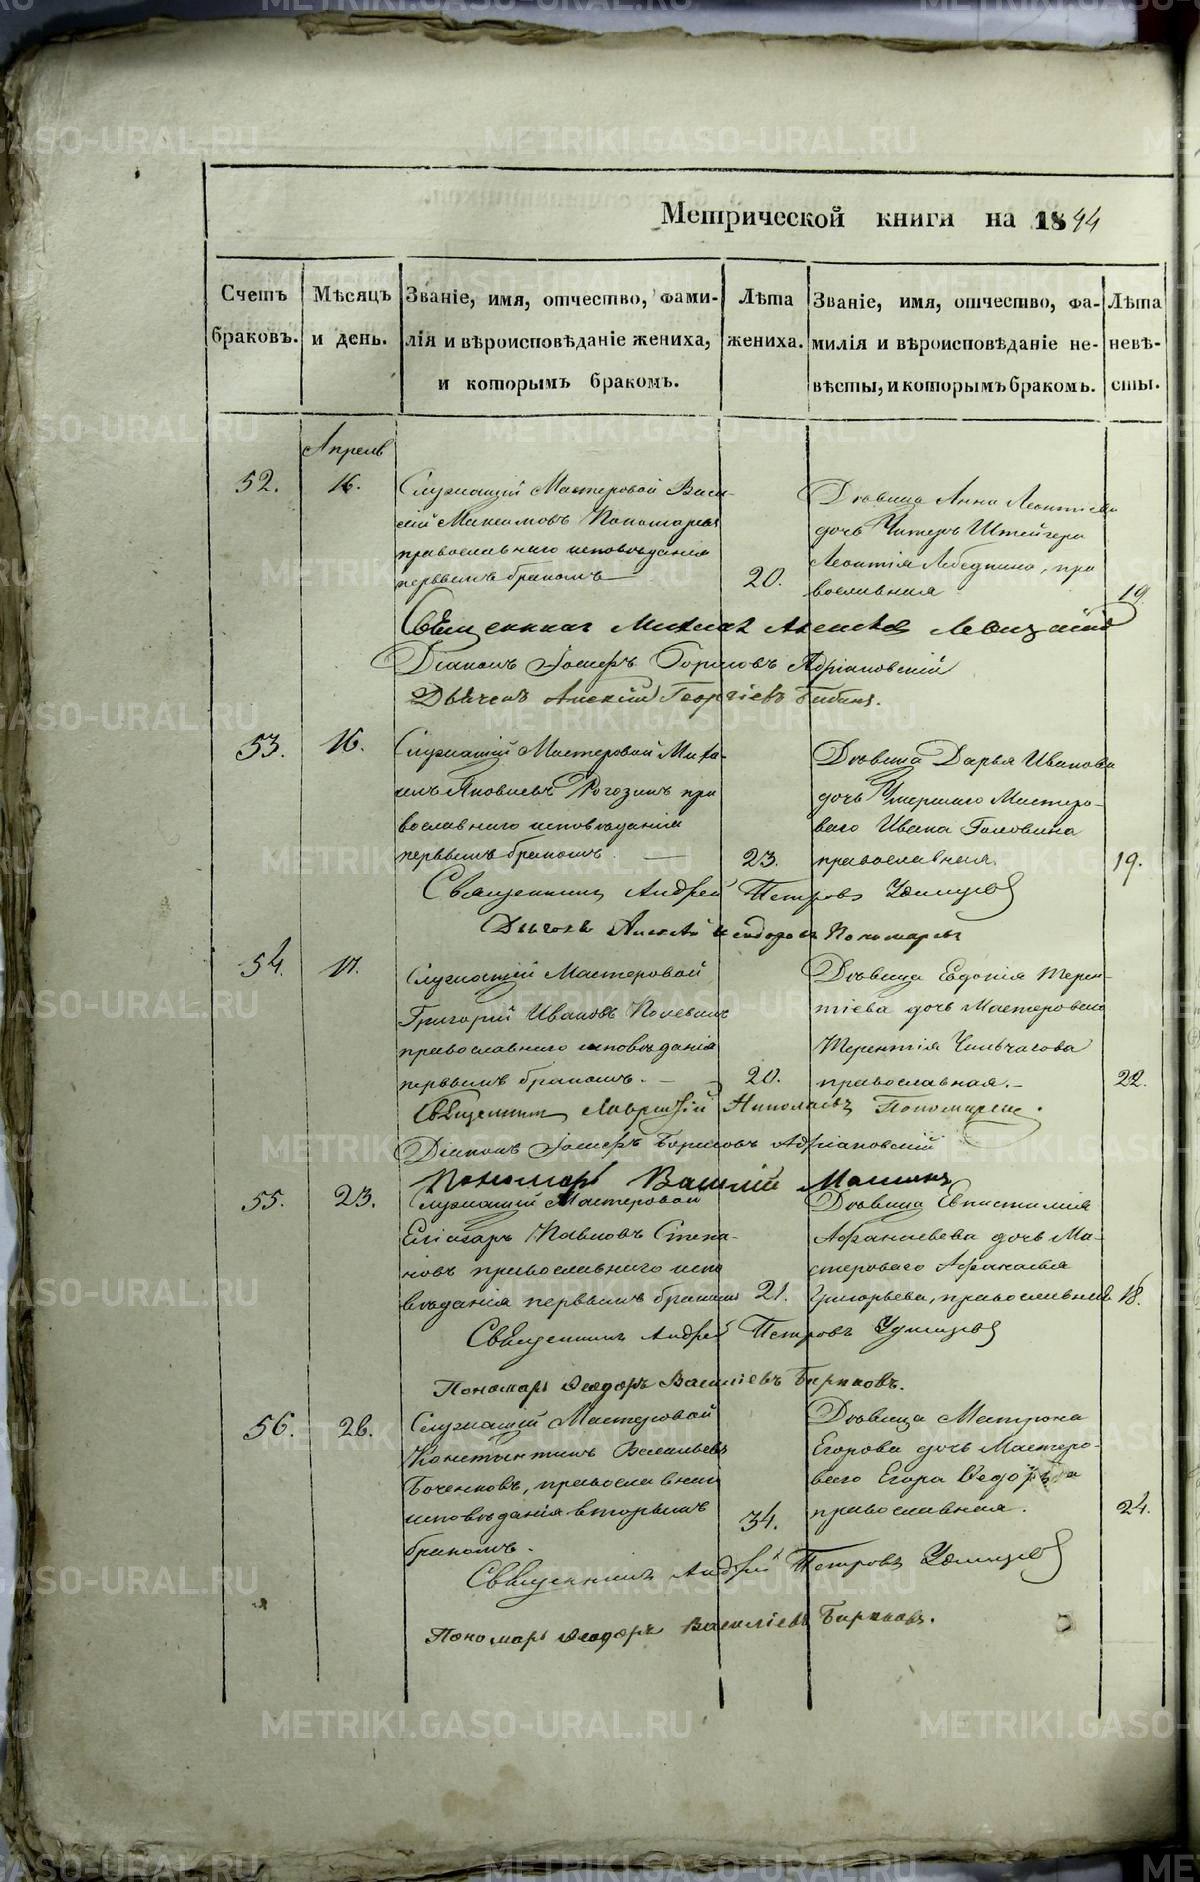 Метрической книги на 1844
Счетъ браковъ.
Мѣсяцъ и день.
Званіе, имя, отчество, фами-
лія и вѣроисповѣданіе жениха,
и которымъ бракомъ.
Лѣта жениха.
Званіе, имя, отчество, фа-
милія и вѣроисповѣданіе не-
вѣсты, и которымъ бракомъ.
Лѣта невѣ-
сты.
Апрель
52.
16.
Служащій Мастеровой Васи-
лій Максимовъ Пономаревъ
православнаго исповѣданія
первымъ бракомъ
20.
Дѣвица Анна Леонтіева
дочь Штейгера
Леонтія Лебедкина, пра
вославная
19
Священникъ Михаилъ
Діаконъ Іосифъ Борисовъ Адріановскій
Дьячекъ Алексій Георгіевъ Бибинъ.
53.
16.
Служащій Мастеровой Миха-
илъ Яковлевъ Рогозинъ пра
вославнаго исповѣданія
первымъ бракомъ.
23.
Дѣвица Дарья Иванова
дочь Умершаго Мастеро-
ваго Ивана Головина
православная.
19.
Священникъ Андрей Петровъ Удинцовъ
Дьячекъ Алексѣй Пономаревъ
54.
17.
Служащій Мастеровой
Григорій Ивановъ Полевинъ
православнаго исповѣданія
первымъ бракомъ.
20.
Дѣвица Евдокія Терен-
тіева дочь Мастероваго
Терентія
православная.
22.
Священникъ Лаврентій Николаевъ Пономаревъ.
Діаконъ Іосифъ Борисовъ Адріановскій
Пономарь Василій
55.
23.
Служащій Мастеровой
Еліазаръ Павловъ Степа-
новъ православнаго испо
вѣданія первымъ бракомъ
21.
Дѣвица Евпистимія
Афанасьева дочь Ма-
стероваго Афанасья
Григорьева, православная
18.
Священникъ Андрей Петровъ Удинцовъ
Пономарь Ѳеодоръ Василіевъ Бирюковъ.
56.
26.
Служащій Мастеровой
Константинъ Васильевъ
Боченковъ, православнаго
исповѣданія вторымъ
бракомъ.
34.
Дѣвица Матрона
Егорова дочь Мастеро-
ваго Егора Ѳедорова
православная.
24.
Священникъ Андрей Петровъ Удинцовъ
Пономарь Ѳеодоръ Василіевъ Бирюковъ.
METRIKI.GASO-URAL.RU